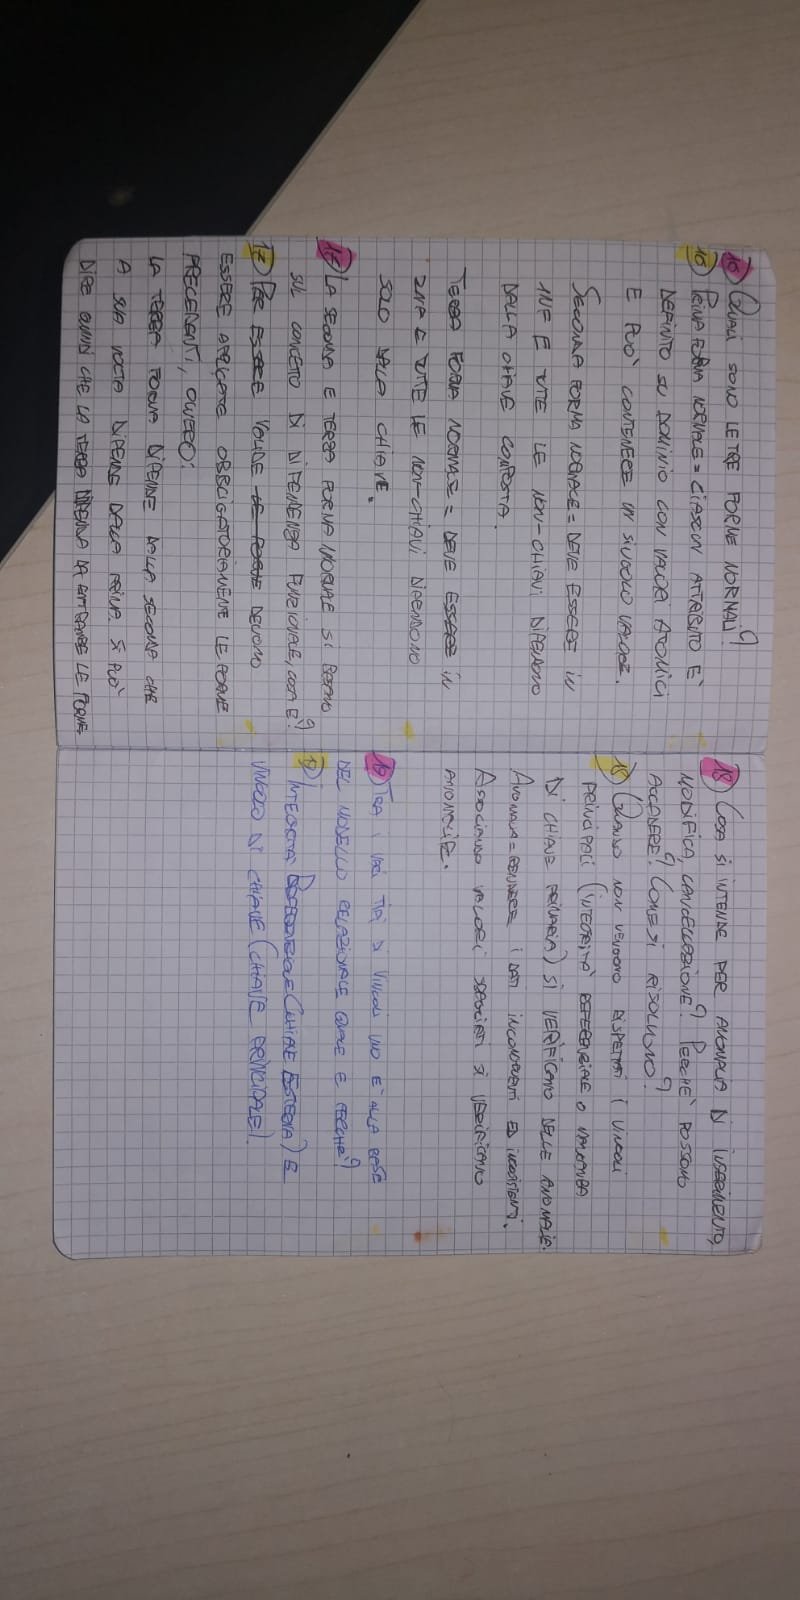 16) QUALI SONO LE TRE FORME NORMALI?
16) PRIMA FORMA NORMALE = CIASCUN ATTRIBUTO È
DEFINITO SU DOMINIO CON VALORI ATOMICI
E PUÒ CONTENERE UN SINGOLO VALORE.
SECONDA FORMA NORMALE = DEVE ESSERE IN
1NF E TUTTE LE NON-CHIAVI DIPENDONO
DALLA CHIAVE COMPOSTA.
TERZA FORMA NORMALE = DEVE ESSERE IN
2NF E TUTTE LE NON-CHIAVI DIPENDONO
SOLO DALLA CHIAVE.
17) LA SECONDA E TERZA FORMA NORMALE SI BASANO
SUL CONCETTO DI DIPENDENZA FUNZIONALE, COSA È?
17) PER ESSERE VALIDE LE FORME DEVONO
ESSERE APPLICATE OBBLIGATORIAMENTE LE FORME
PRECEDENTI, OVVERO:
LA TERZA FORMA DIPENDE DALLA SECONDA CHE
A SUA VOLTA DIPENDE DALLA PRIMA. SI PUÒ
DIRE QUINDI CHE LA TERZA DIPENDA DA ENTRAMBE LE FORME
18) COSA SI INTENDE PER ANOMALIA DI INSERIMENTO,
MODIFICA, CANCELLAZIONE? PERCHÈ POSSONO
ACCADERE? COME SI RISOLVONO?
18) QUANDO NON VENGONO RISPETTATI I VINCOLI
PRINCIPALI (INTEGRITÀ REFERENZIALE O MANCANZA
DI CHIAVE PRIMARIA) SI VERIFICANO DELLE ANOMALIE.
ANOMALIA = RENDERE I DATI INCOERENTI ED INCOSISTENTI.
ASSOCIANDO VALORI SBAGLIATI SI VERIFICANO
ANOMALIE.
19) TRA I VARI TIPI DI VINCOLI UNO E' ALLA BASE
DEL MODELLO RELAZIONALE QUALE E PERCHÈ?
19) INTEGRITÀ REFERENZIALE (CHIAVE ESTERNA) E
VINCOLO DI CHIAVE (CHIAVE PRINCIPALE).